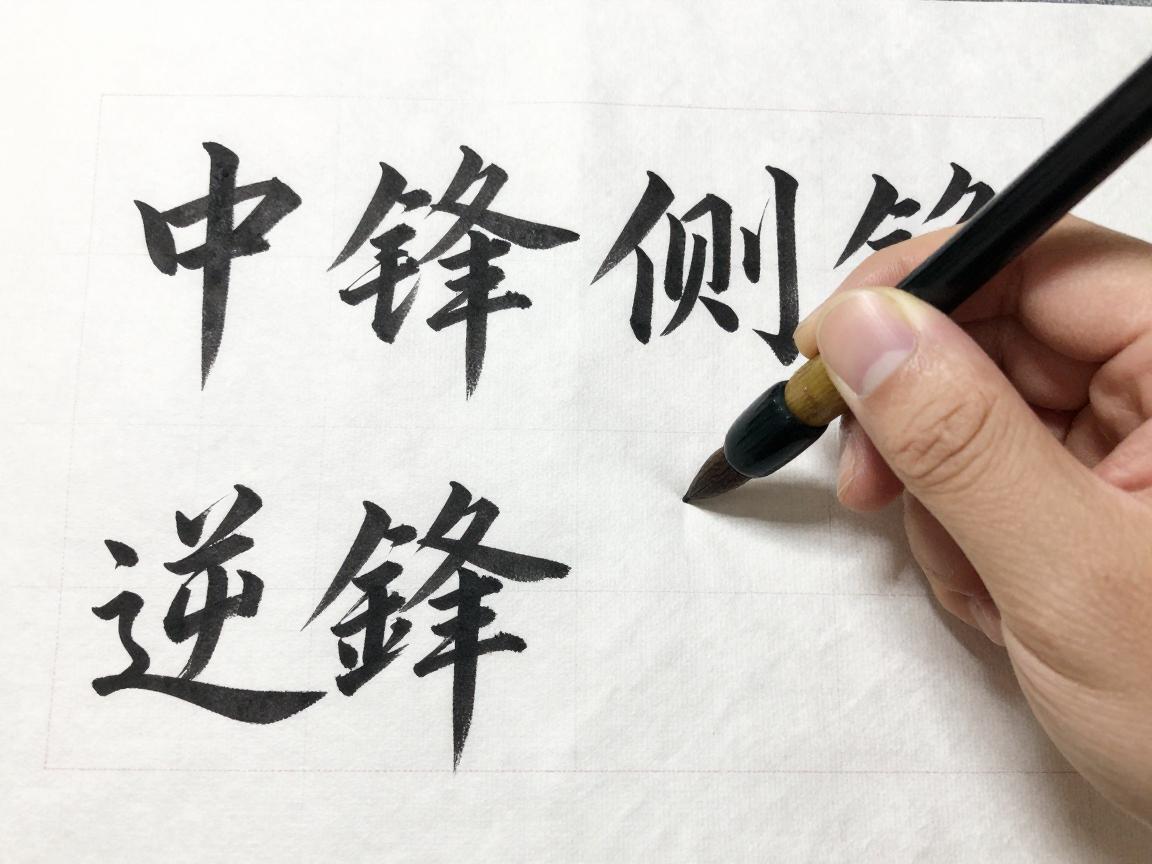 中锋侧
逆鋒